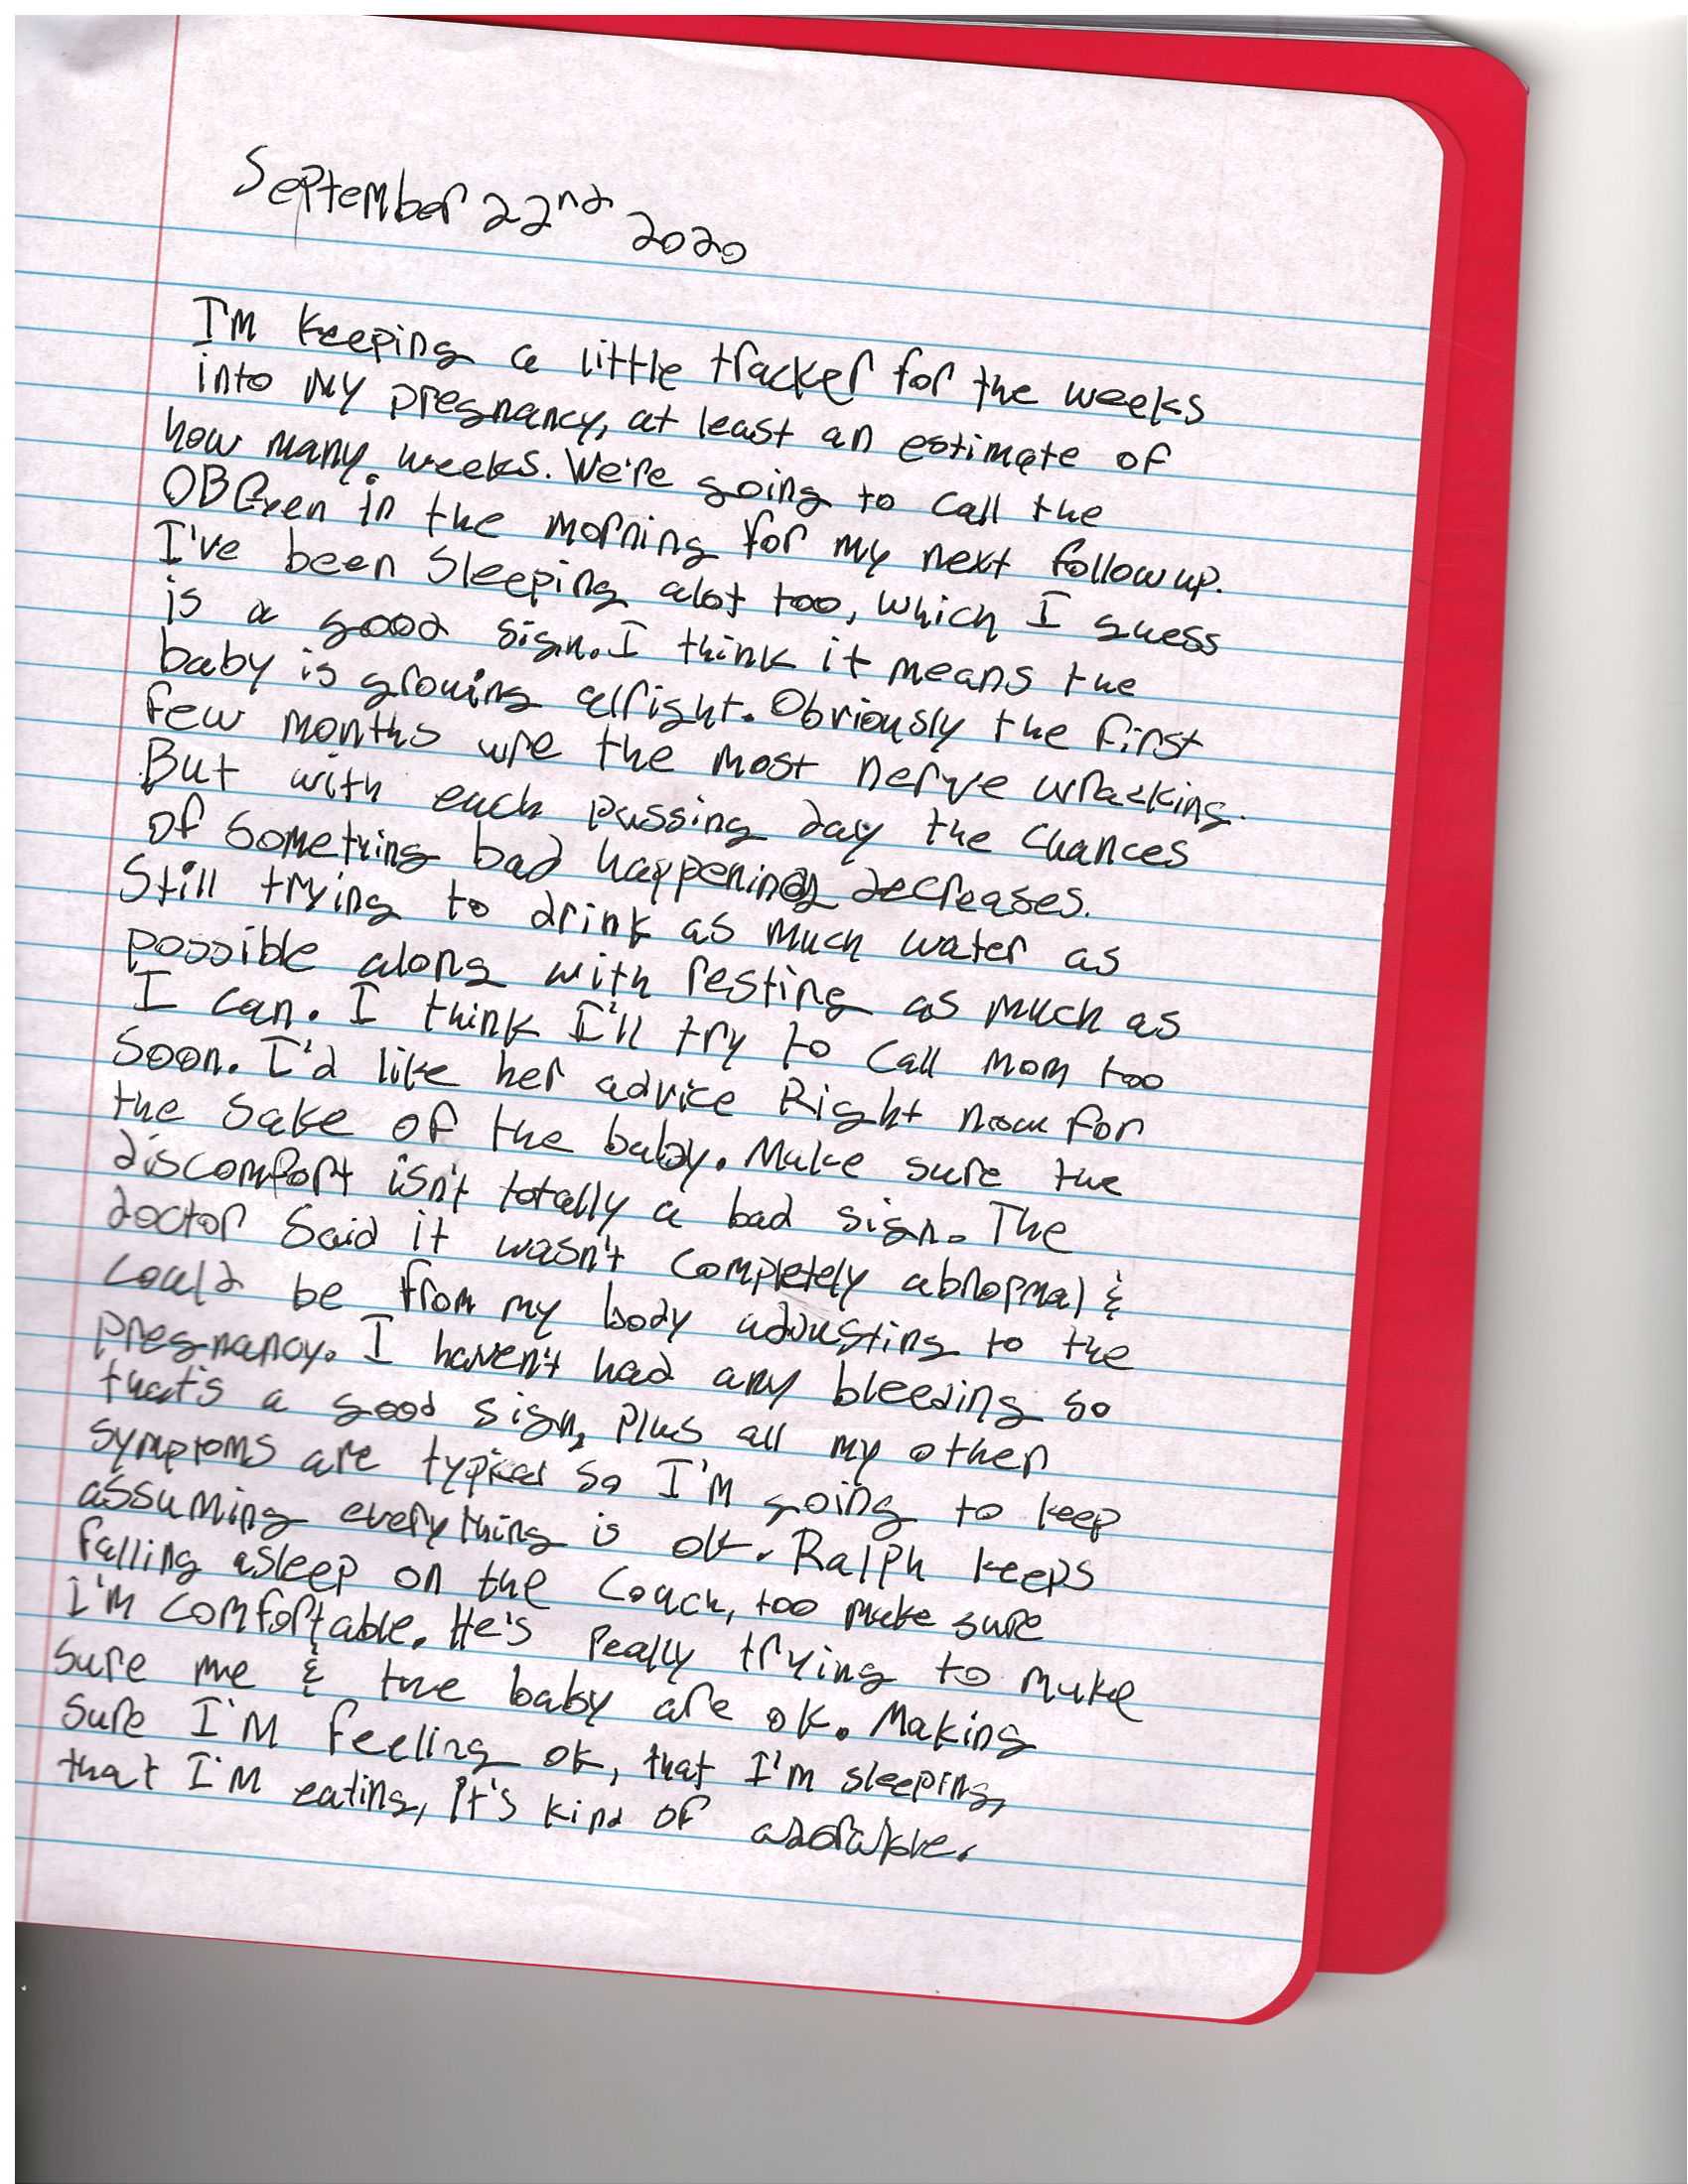 September 22nd 2020
I'm keeping a little tracker for the weeks
into my pregnancy, at least an estimate of
how many weeks. We're going to call the
OBGyen in the morning for my next followup.
I've been sleeping alot too, which I guess
is a good sign. I think it means the
baby is growing alright. Obviously the first
few months are the most nerve wracking.
But with each passing day the chances
of something bad happening decreases.
Still trying to drink as much water as
possible along with resting as much as
I can. I think I'll try to call mom too
soon. I'd like her advice Right now for
the sake of the baby. Make sure the
discomfort isn't totally a bad sign. The
doctor said it wasn't completely abnormal &
could be from my body adjusting to the
pregnancy. I haven't had any bleeding so
that's a good sign, plus all my other
symptoms are typical so I'm going to keep
assuming everything is ok. Ralph keeps
falling asleep on the couch, too make sure
I'm comfortable. He's really trying to make
sure me & the baby are ok. Making
sure I'm feeling ok, that I'm sleeping,
that I'm eating, it's kind of adorable.